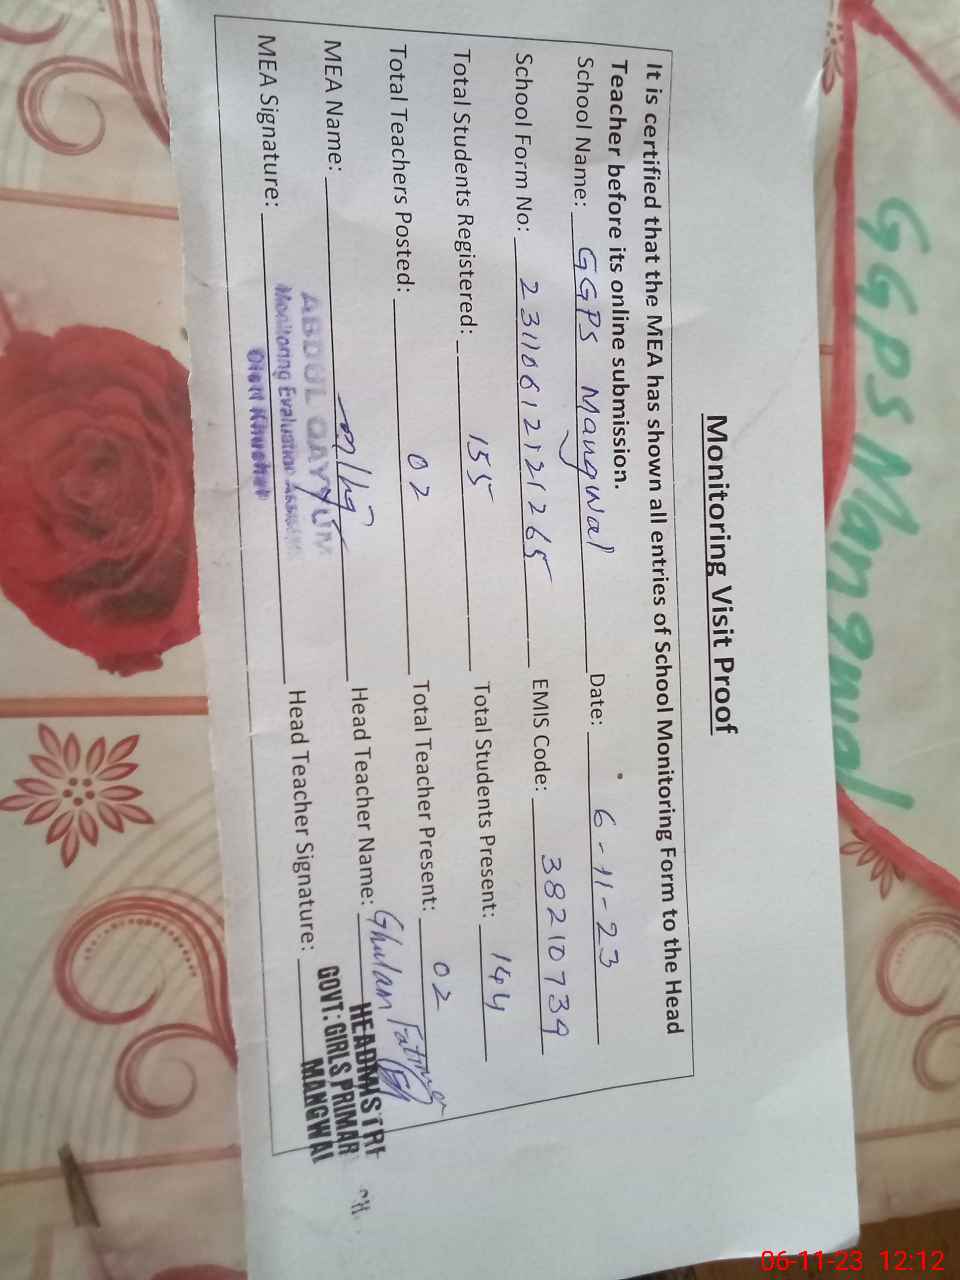 GGPS Mangwal
Monitoring Visit Proof
It is certified that the MEA has shown all entries of School Monitoring Form to the Head
Teacher before its online submission.
School Name: GGPS Mangwal Date: 6-11-23
School Form No: 23110612121265 EMIS Code: 38210739
Total Students Registered: 155 Total Students Present: 144
Total Teachers Posted: 02 Total Teacher Present: 02
MEA Name: Head Teacher Name: Ghulam Fatima
ABDUL QAYYUM
Monitoring Evaluation
MEA Signature: Head Teacher Signature:
GOVT: GIRLS PRIMAR
MANGWAL
06-11-23 12:12